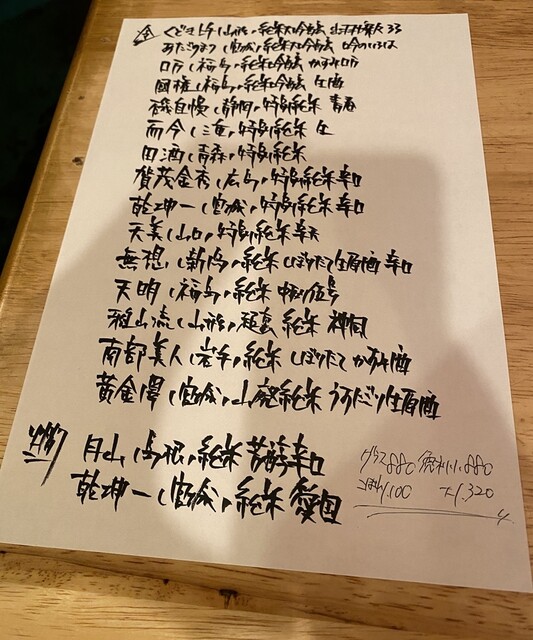 くどき上手 山形 純米大吟醸 33
あたごのまつ 宮城 純米大吟醸 吟のいろは
ロ万 福島 純米吟醸 かすみロ万
國権 福島 純米吟醸 生酒
磯自慢 静岡 特別純米 青春
而今 三重 特別純米 生
田酒 青森 特別純米
賀茂金秀 広島 特別純米 辛口
乾坤一 宮城 特別純米 辛口
天美 山口 特別純米
無想 新潟 純米 しぼりたて生原酒 辛口
天明 福島 純米 中取り
雅山流 山形 純米
南部美人 岩手 純米 しぼりたて かすみ酒
黄金澤 宮城 山廃純米 うすにごり生原酒
月山 島根 純米 芳醇辛口
乾坤一 宮城 純米 愛国
グラス880 徳利小880
1,100 大1,320